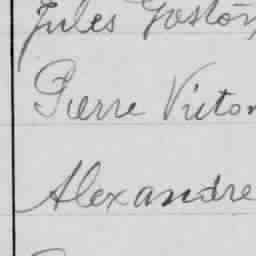 Jules Gaston,
Pierre Victor
Alexandre